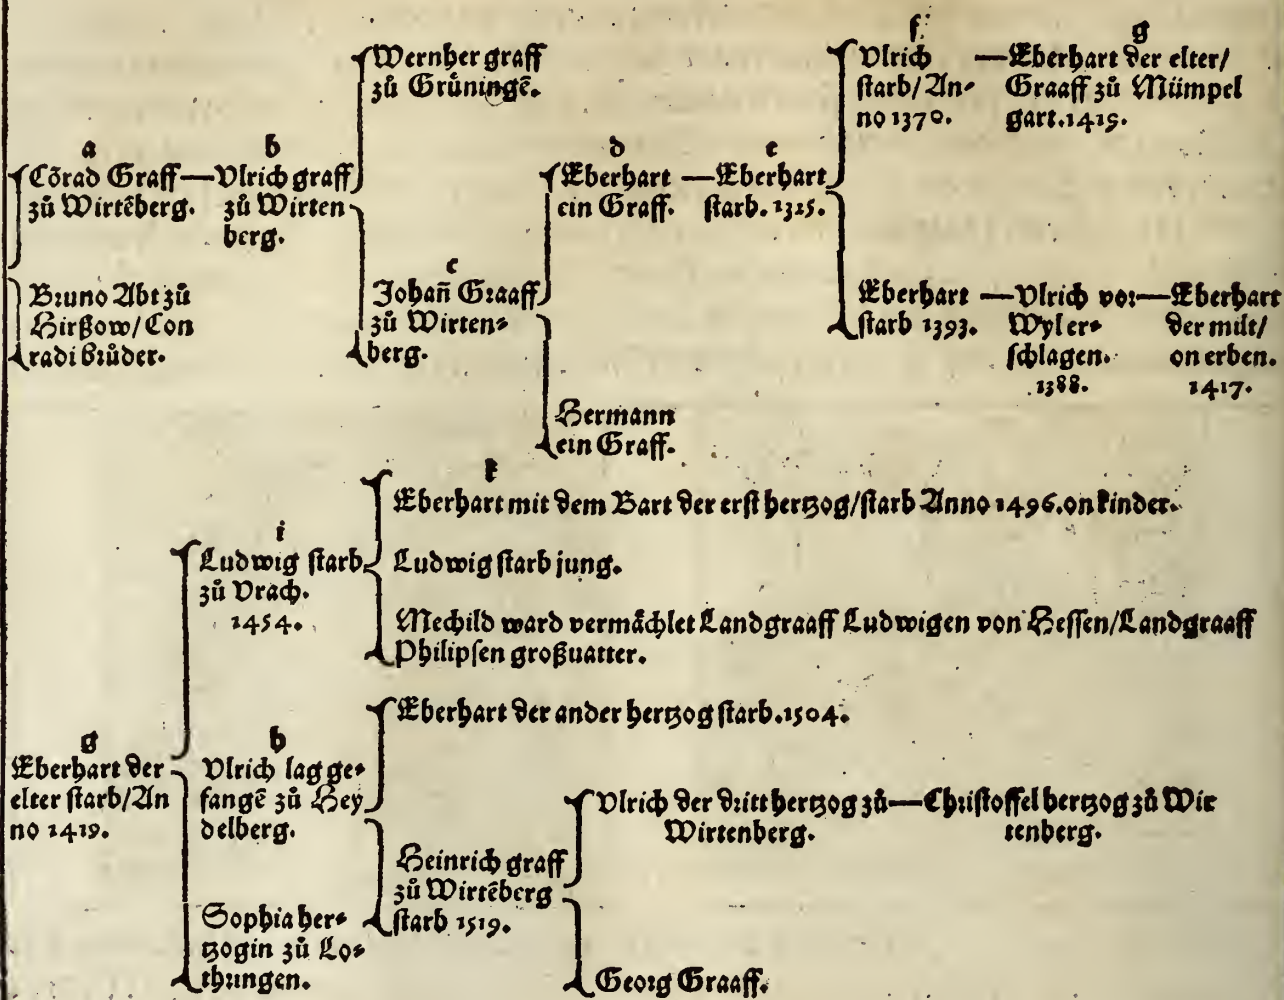 a
Cõrad Graff—
zů Wirtẽberg.
Bruno Abt zů
Hirßow/Con
radi Brůder.
b
Vlrich graff
zů Wirten
berg.
Wernher graff
zů Grůningẽ.
c
Johañ Graaff
zů Wirten⸗
berg.
d
Eberhart —
ein Graff.
Hermann
ein Graff.
e
Eberhart
starb. 1325.
f
Vlrich —
starb/An⸗
no 1370.
g
Eberhart der elter/
Graaff zů Mümpel
gart.1419.
Eberhart —
starb 1393.
Vlrich vor—
Wyl er⸗
schlagen.
1388.
Eberhart
der milt/
on erben.
1417.
g
Eberhart der
elter starb/An
no 1419.
i
Ludwig starb
zů Vrach.
1454.
k
Eberhart mit dem Bart der erst hertzog/starb Anno 1496.on kinder.
Ludwig starb jung.
Mechild ward vermåchlet Landgraaff Ludwigen von Hessen/Landgraaff
Philipsen großuatter.
h
Vlrich lag ge⸗
fangẽ zů Hey
delberg.
Eberhart der ander hertzog starb.1504.
Heinrich graff
zů Wirtẽberg
starb 1519.
Vlrich der dritt hertzog zů—
Wirtenberg.
Christoffel hertzog zů Wir
tenberg.
Georg Graaff.
Sophia her⸗
tzogin zů Lo⸗
thringen.